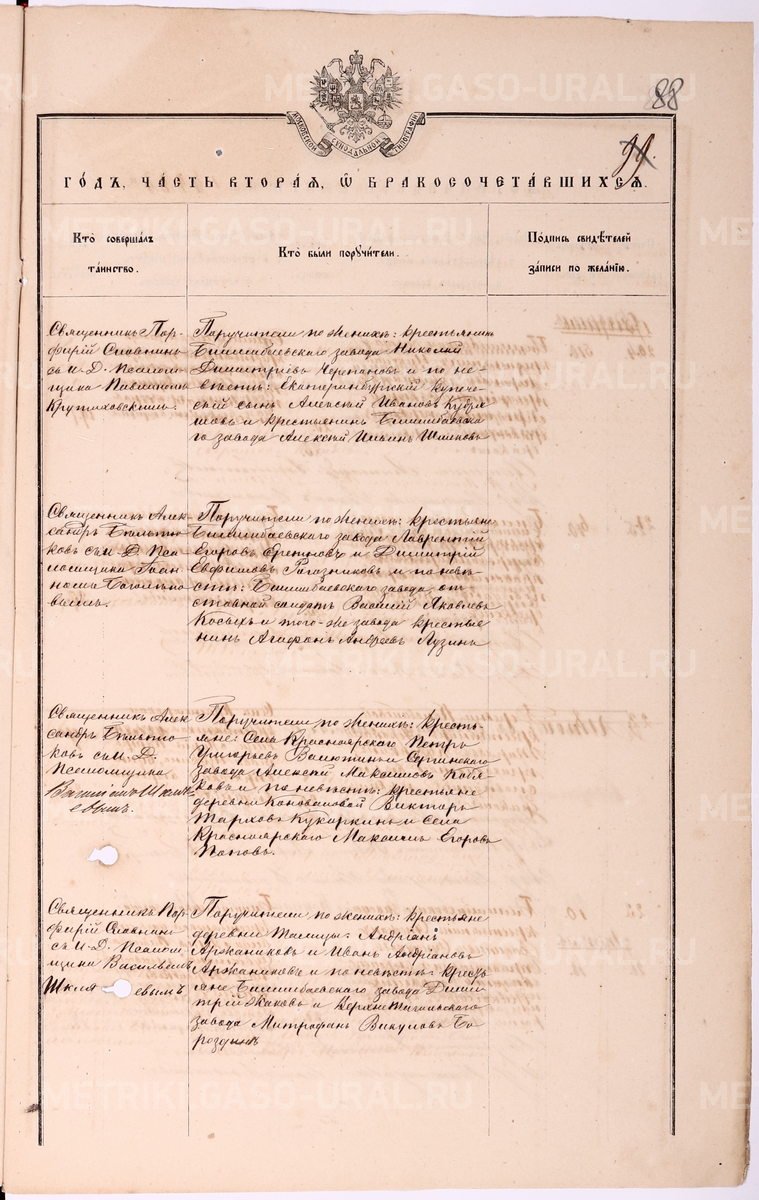 88
99.
МОСКОВСКОЙ СѴНОДАЛЬНОЙ ТИПОГРАФІИ
ГОДЪ, ЧАСТЬ ВТОРАЯ, Ѡ БРАКОСОЧЕТАВШИХСЯ.
Кто совершалъ
таинство.
Кто были поручители.
Подпись свидѣтелей
записи по желанію.
Священникъ Пор-
фирій Славнинъ
съ и. д. Псалом-
щика Павлиномъ
Крутиховскимъ.
Поручители по женихѣ: крестьянинъ
Билимбаевскаго завода Николай
Димитріевъ Черепановъ и по не-
вѣстѣ: Екатеринбургскій купече-
скій сынъ Алексѣй Ивановъ Кудря-
шовъ и крестьянинъ Билимбаевска
го завода Алексѣй Ильинъ
Священникъ Алек-
сандръ Бѣльты-
ковъ съ и. д. Пса-
ломщика Іоан-
номъ Боголюбо-
вымъ.
Поручители по женихѣ: крестьяне
Билимбаевскаго завода Лаврентій
Егоровъ и Димитрій
Евфимовъ и по невѣ-
стѣ: Билимбаевскаго завода от
ставной солдатъ Василій Яковлевъ
Косыхъ и того-же завода крестья
нинъ Агафонъ Андреевъ Лузинъ
Священникъ Алек
сандръ Бѣльты-
ковъ съ и. д.
Псаломщика
Василіемъ Шкля
евымъ.
Поручители по женихѣ: кресть-
яне: Села Красноярскаго Петръ
Григорьевъ и Сергинскаго
завода Алексѣй Максимовъ Кобя-
ковъ и по невѣстѣ: крестьяне
деревни Коноваловой Викторъ
Тарховъ Кукаркинъ и Села
Красноярскаго Максимъ Егоровъ
Поповъ.
Священникъ Пор-
фирій Славнинъ
съ и. д. Псалом-
щика Василіемъ
Шкля евымъ
Поручители по женихѣ: крестьяне
деревни Талицы: Андріанъ
Аржаниковъ и Иванъ Андріановъ
Аржаниковъ и по невѣстѣ: кресть
яне Билимбаевскаго завода Дими
трій Жаковъ и Верхнетагильскаго
завода Митрофанъ Викуловъ Бо
роздинъ
METRIKI.GASO-URAL.RU
METRIKI.GASO-URAL.RU
METRIKI.GASO-URAL.RU
METRIKI.GASO-URAL.RU
METRIKI.GASO-URAL.RU
METRIKI.GASO-URAL.RU
METRIKI.GASO-URAL.RU